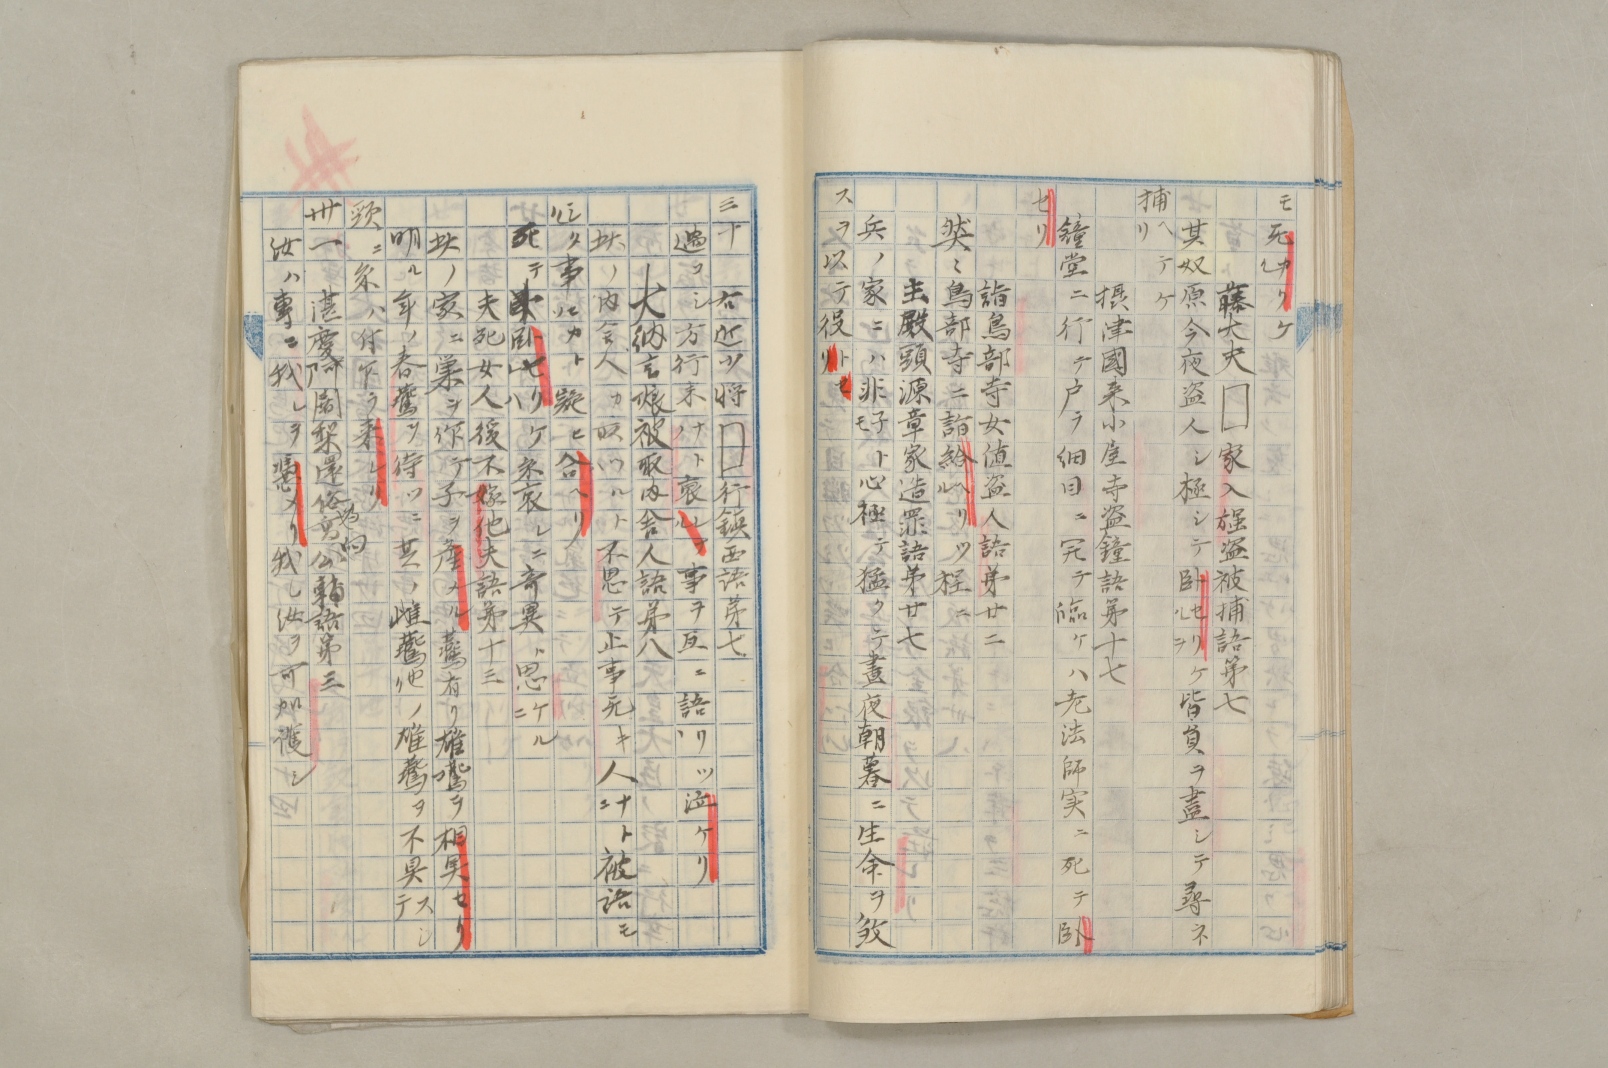 モ死ルカクケ
藤大夫□家入強盗被捕語第七
其奴原今夜盗人シ極シテ臥セリケルヲ皆員ヲ盡シテ尋ネ
捕ヘテケリ
摂津國来小屋寺盗鐘語第十七
鐘堂ニ行テ戸ヲ細目ニ開テ臨ケハ老法師実ニ死テ臥
セリ
詣鳥部寺女値盗人語第廿二
然ミ鳥部寺ニ詣給ヘリツル程ニ
主殿頭源章家造罪語第廿七
兵ノ家ニハ非子トモ心極テ猛クテ晝夜朝暮ニ生命ヲ殺
スヲ以テ役トセリ
三十 右近少将□行鎮西語第七
過コシ方行末ナトノ哀ルヽ事ヲ互ニ語リツヽ泣ケリ
大納言娘被取内舎人語第八
此ノ内舎人カ呼ツルト不思テ止事无キ人ニナト被語モ
シタル事ニカト疑ヒ合ヘリ
死テ臥セリケハ糸哀レニ奇異ト思ケルニ
夫死女人後不嫁他夫語第十三
此ノ家ニ巣ヲ作テ子ヲ産メル鷰有リ雄鷰ヲ相具セリ
明ル年ノ春鷰ヲ待ツニ其ノ雌鷰他ノ雄鷰ヲ不具スシテ
頸ニ糸ハ付乍ラ来レリ
卅一 湛慶阿闍梨還俗為高向公輔語第三
汝ハ專ニ我レヲ憑メリ我レ汝ヲ可加護シ